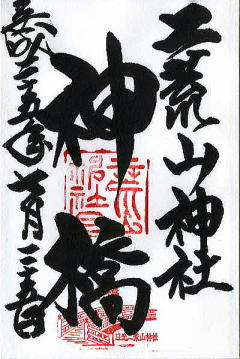 二荒山神社
神橋
平成二十五年七月二十五日
日光二荒山神社